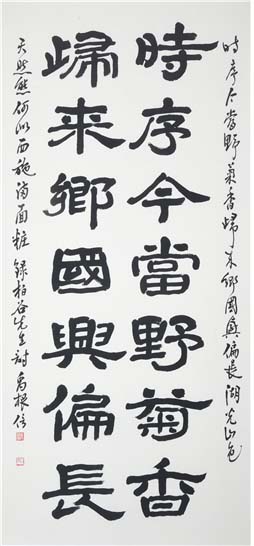 時序今當野菊香歸来鄉國興偏長湖光山色
時序今當野菊香
歸来鄉國興偏長
天然態何似西施滿面粧 錄柏谷先生詩 根信